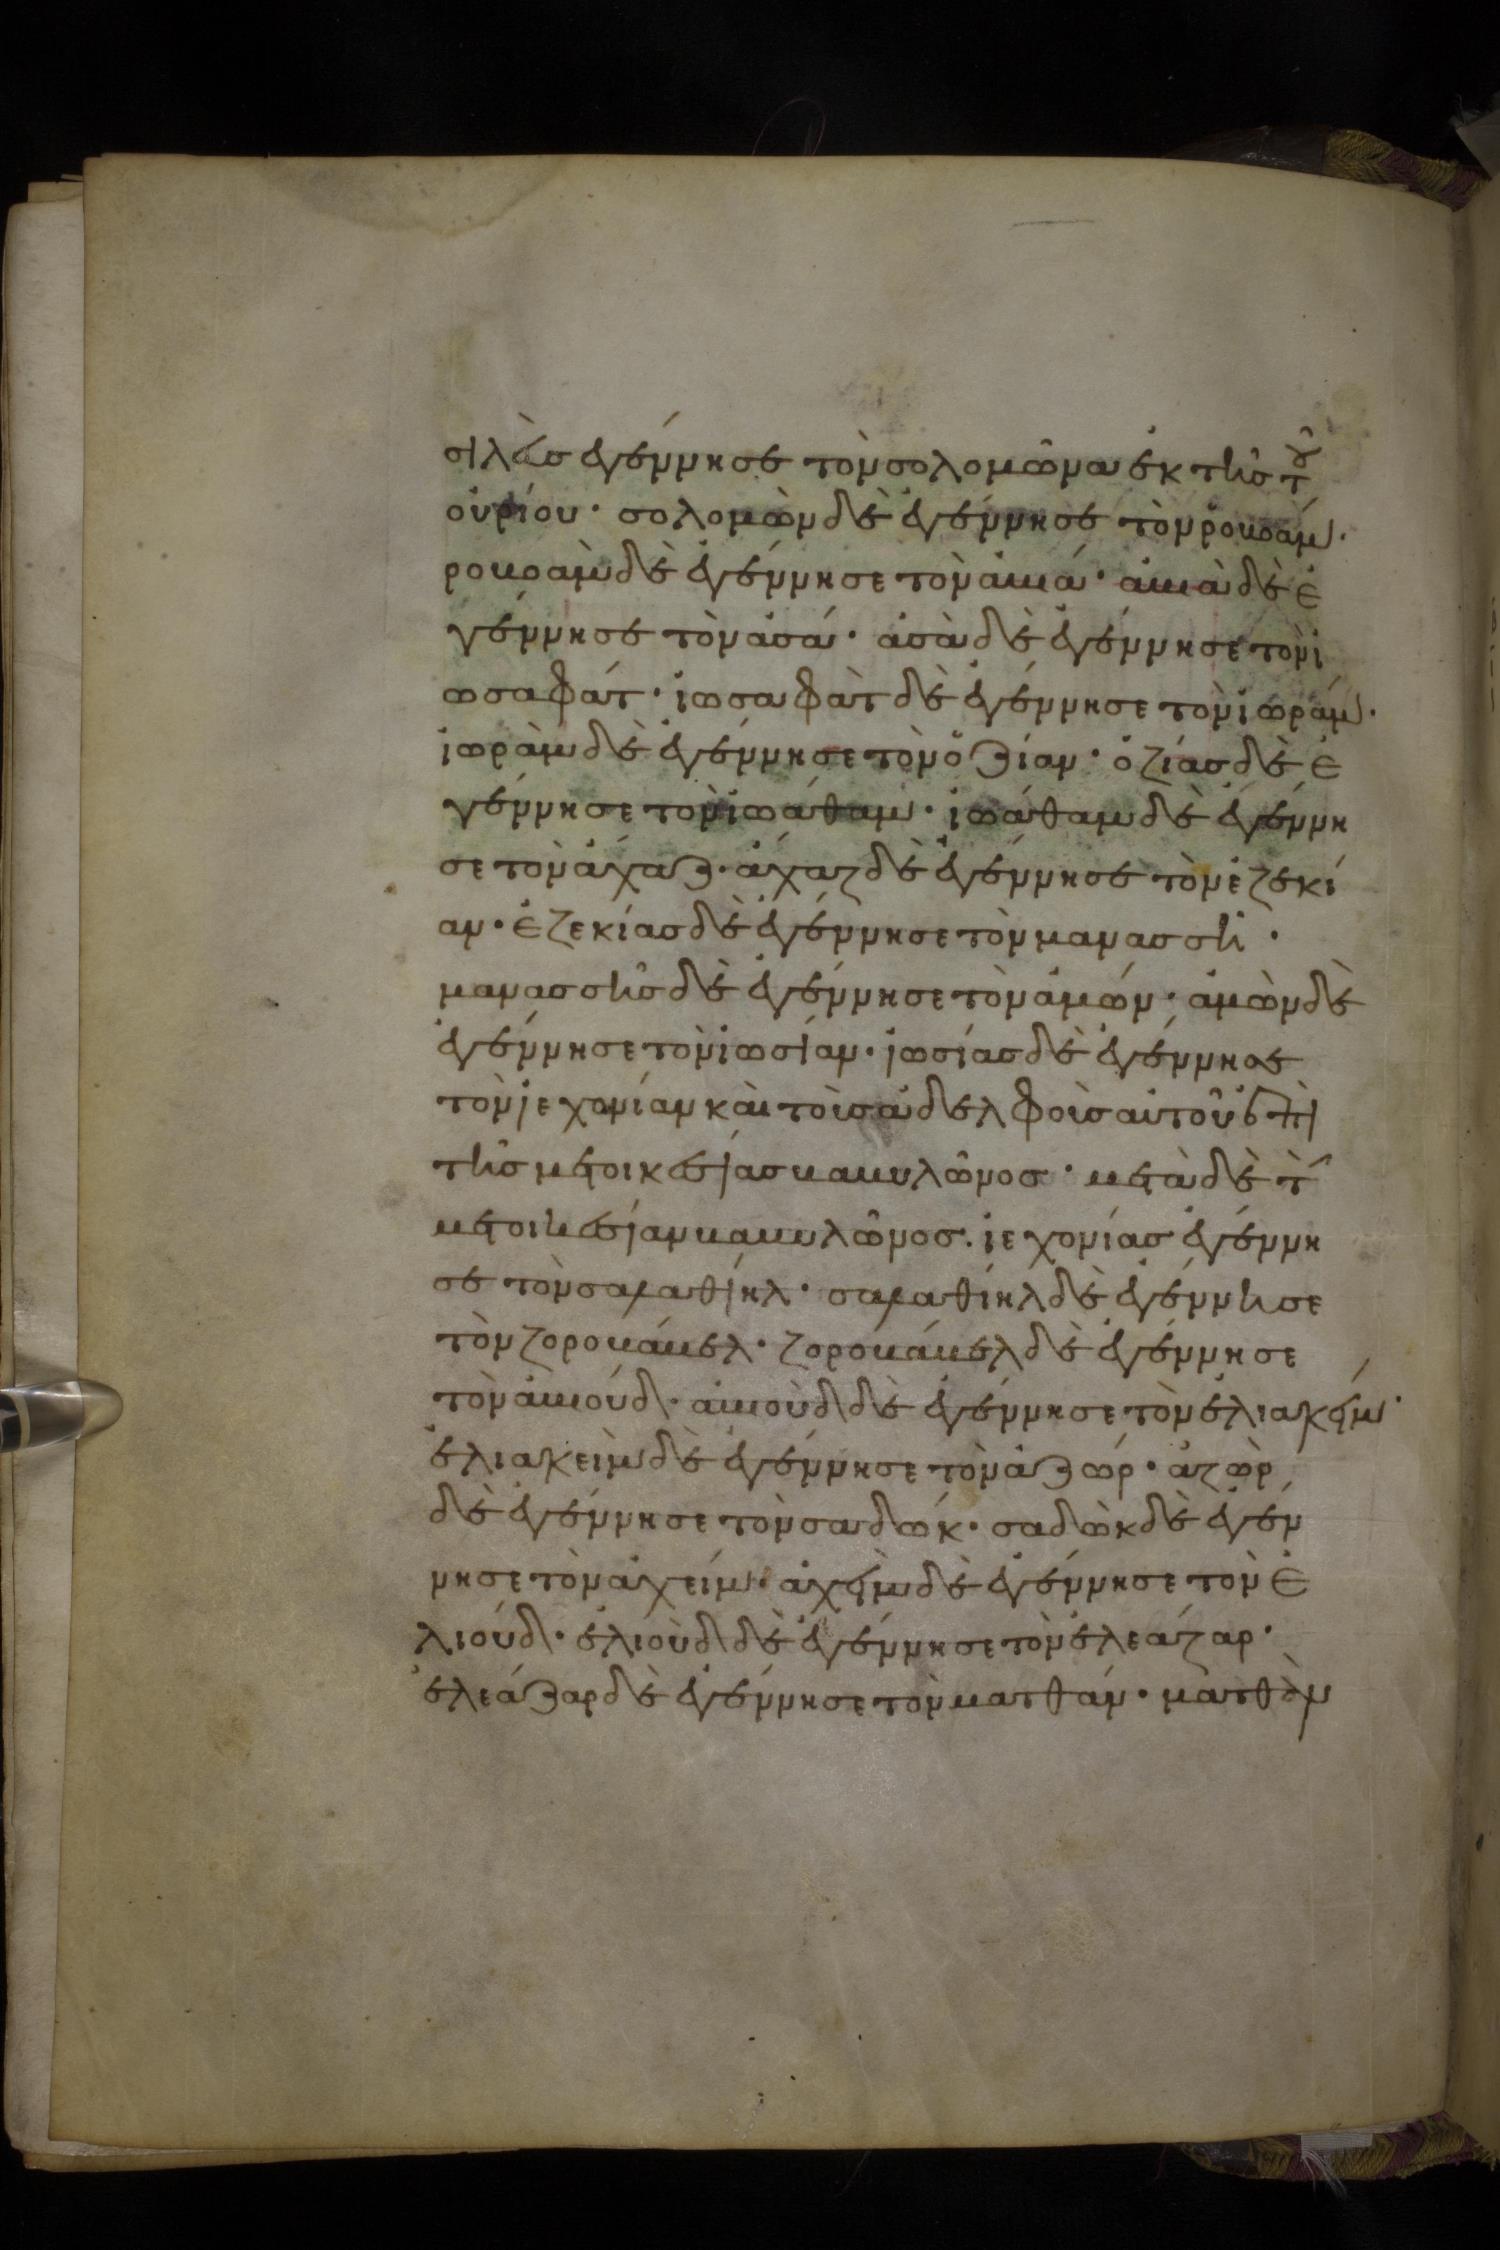 σιλεὺς ἐγέννησε τὸν σολομῶνα ἐκ τῆς τοῦ
οὐρίου· σολομὼν δὲ ἐγέννησε τὸν ῥοβοάμ·
ροβοὰμ δὲ ἐγέννησε τὸν ἀβιά· ἀβιὰ δὲ ἐ
γέννησε τὸν ἀσά· ἀσὰ δὲ ἐγέννησε τὸν ἰ
ωσαφάτ· ἰωσαφὰτ δὲ ἐγέννησε τὸν ἰωράμ·
ἰωρὰμ δὲ ἐγέννησε τὸν ὀζίαν· ὀζίας δὲ ἐ
γέννησε τὸν ἰωάθαμ· ἰωάθαμ δὲ ἐγέννη
σε τὸν ἄχαζ· ἄχαζ δὲ ἐγέννησε τὸν ἐζεκί
αν· ἐζεκίας δὲ ἐγέννησε τὸν μανασσῆ·
μανασσῆς δὲ ἐγέννησε τὸν ἀμών· ἀμὼν δὲ
ἐγέννησε τὸν ἰωσίαν· ἰωσίας δὲ ἐγέννησε
τὸν ἰεχονίαν καὶ τοὺς ἀδελφοὺς αὐτοῦ ἐπὶ
τῆς μετοικεσίας βαβυλῶνος· μετὰ δὲ τὴν
μετοικεσίαν βαβυλῶνος· ἰεχονίας ἐγέννη
σε τὸν σαλαθιήλ· σαλαθιὴλ δὲ ἐγέννησε
τὸν ζοροβάβελ· ζοροβάβελ δὲ ἐγέννησε
τὸν ἀβιούδ· ἀβιοὺδ δὲ ἐγέννησε τὸν ἐλιακείμ·
ἐλιακεὶμ δὲ ἐγέννησε τὸν ἀζώρ· ἀζὼρ
δὲ ἐγέννησε τὸν σαδώκ· σαδὼκ δὲ ἐγέν
νησε τὸν ἀχείμ· ἀχεὶμ δὲ ἐγέννησε τὸν ἐ
λιούδ· ἐλιοὺδ δὲ ἐγέννησε τὸν ἐλεάζαρ·
ἐλεάζαρ δὲ ἐγέννησε τὸν ματθάν· ματθὰν